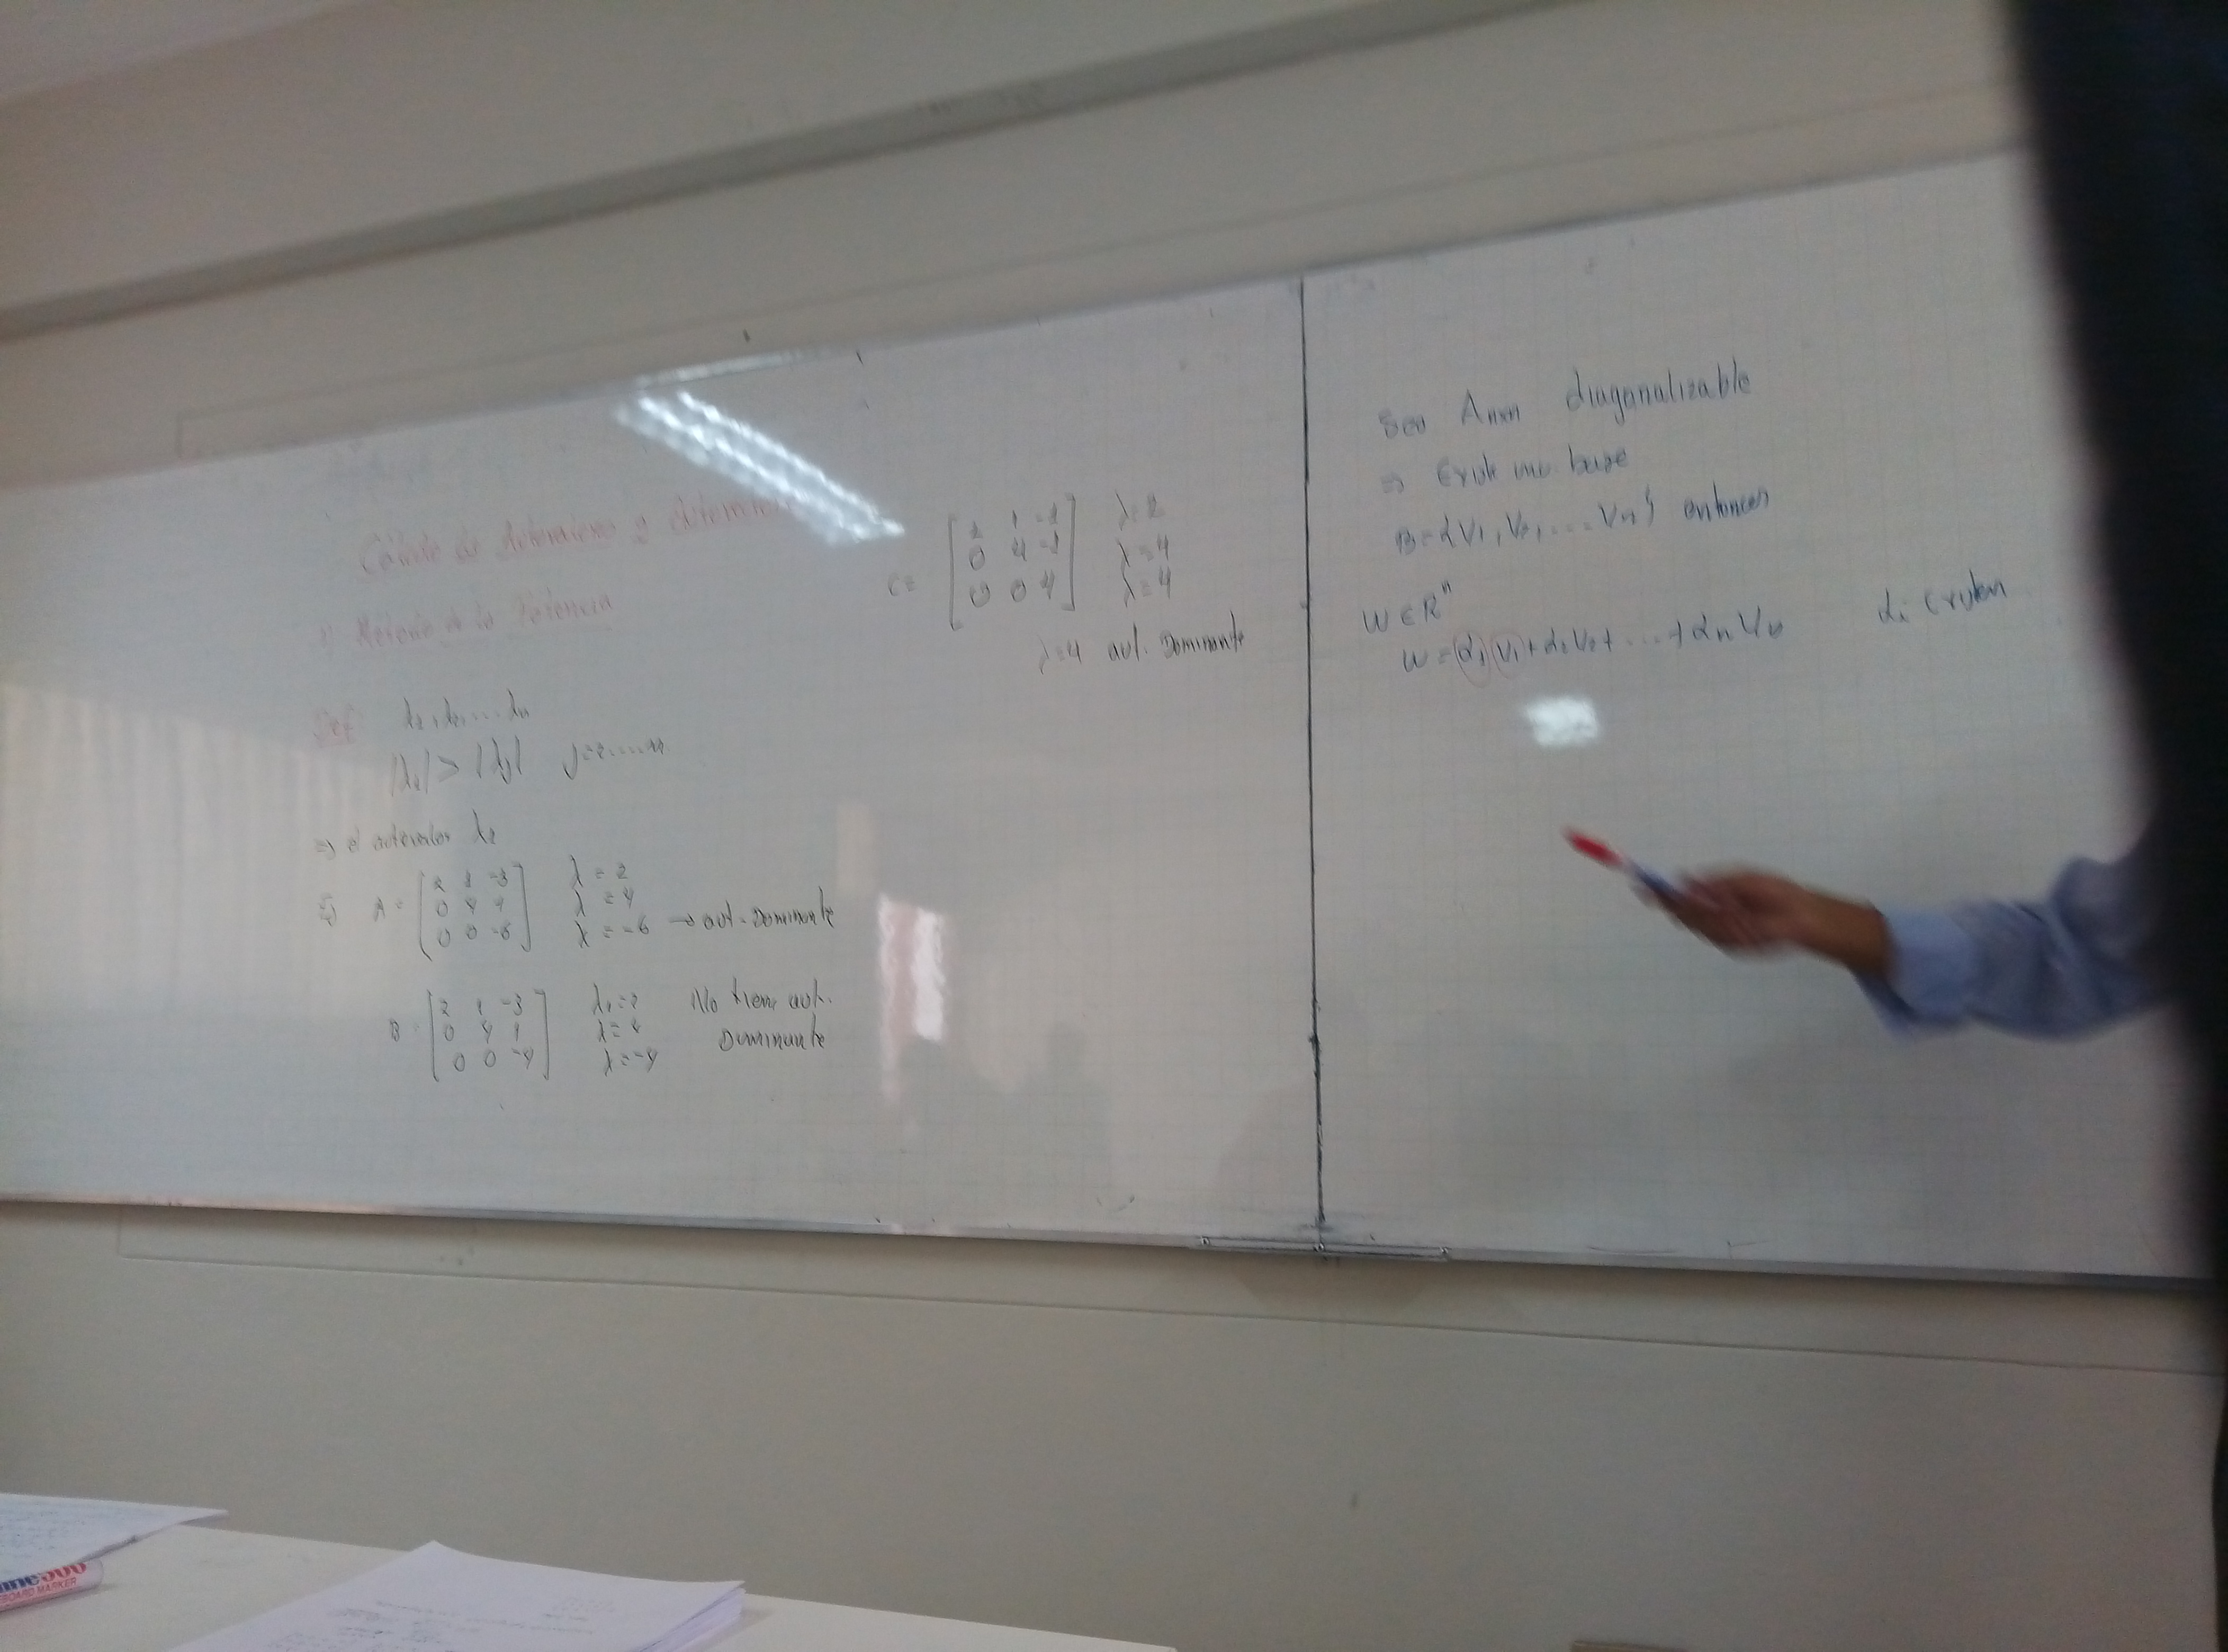 Cálculo de autovalores y
1) Método de la Potencia
Def: λ1, λ2, ... λn
|λ1| > |λj| j=2....n
⇒ el autovalor λ1
A = [2 1 -3
0 4 1
0 0 -6] λ = 2
λ = 4
λ = -6 → aut. Dominante
B = [2 1 -3
0 4 1
0 0 -4] λ1 = 2
λ = 4
λ = -4
No tiene aut.
Dominante
C = [2 1 -1
0 4 -1
0 0 4] λ = 2
λ = 4
λ = 4
λ=4 aut. Dominante
Sea Anxn diagonalizable
⇒ Existe una base
B = {V1, V2, ... Vn} entonces
W ∈ R^n
W = α1 V1 + α2 V2 + ... + αn Vn αi Existen
BOARD MARKER